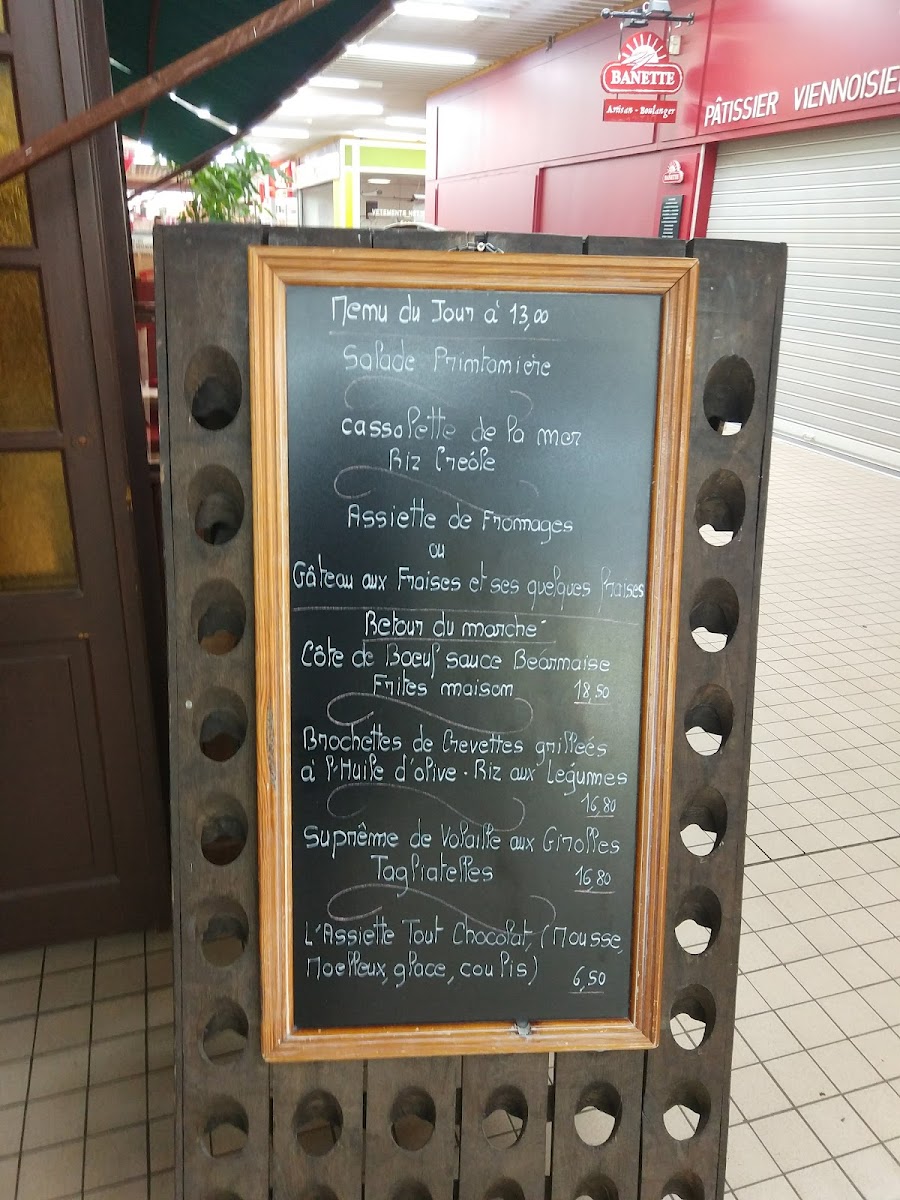 BANETTE
Artisan - Boulanger
PÂTISSIER VIENNOISIE
BANETTE
VÊTEMENTS
Menu du Jour à 13,00
Salade Printanière
Cassolette de la mer
Riz Créole
Assiette de Fromages
ou
Gâteau aux Fraises et ses quelques fraises
Retour du marché
Côte de Boeuf sauce Béarnaise
Frites maison 18,50
Brochettes de Crevettes grillées
à l'Huile d'olive - Riz aux Légumes
16,80
Suprême de Volaille aux Girolles
Tagliatelles 16,80
L'Assiette Tout Chocolat, (Mousse,
Moelleux, glace, coulis) 6,50